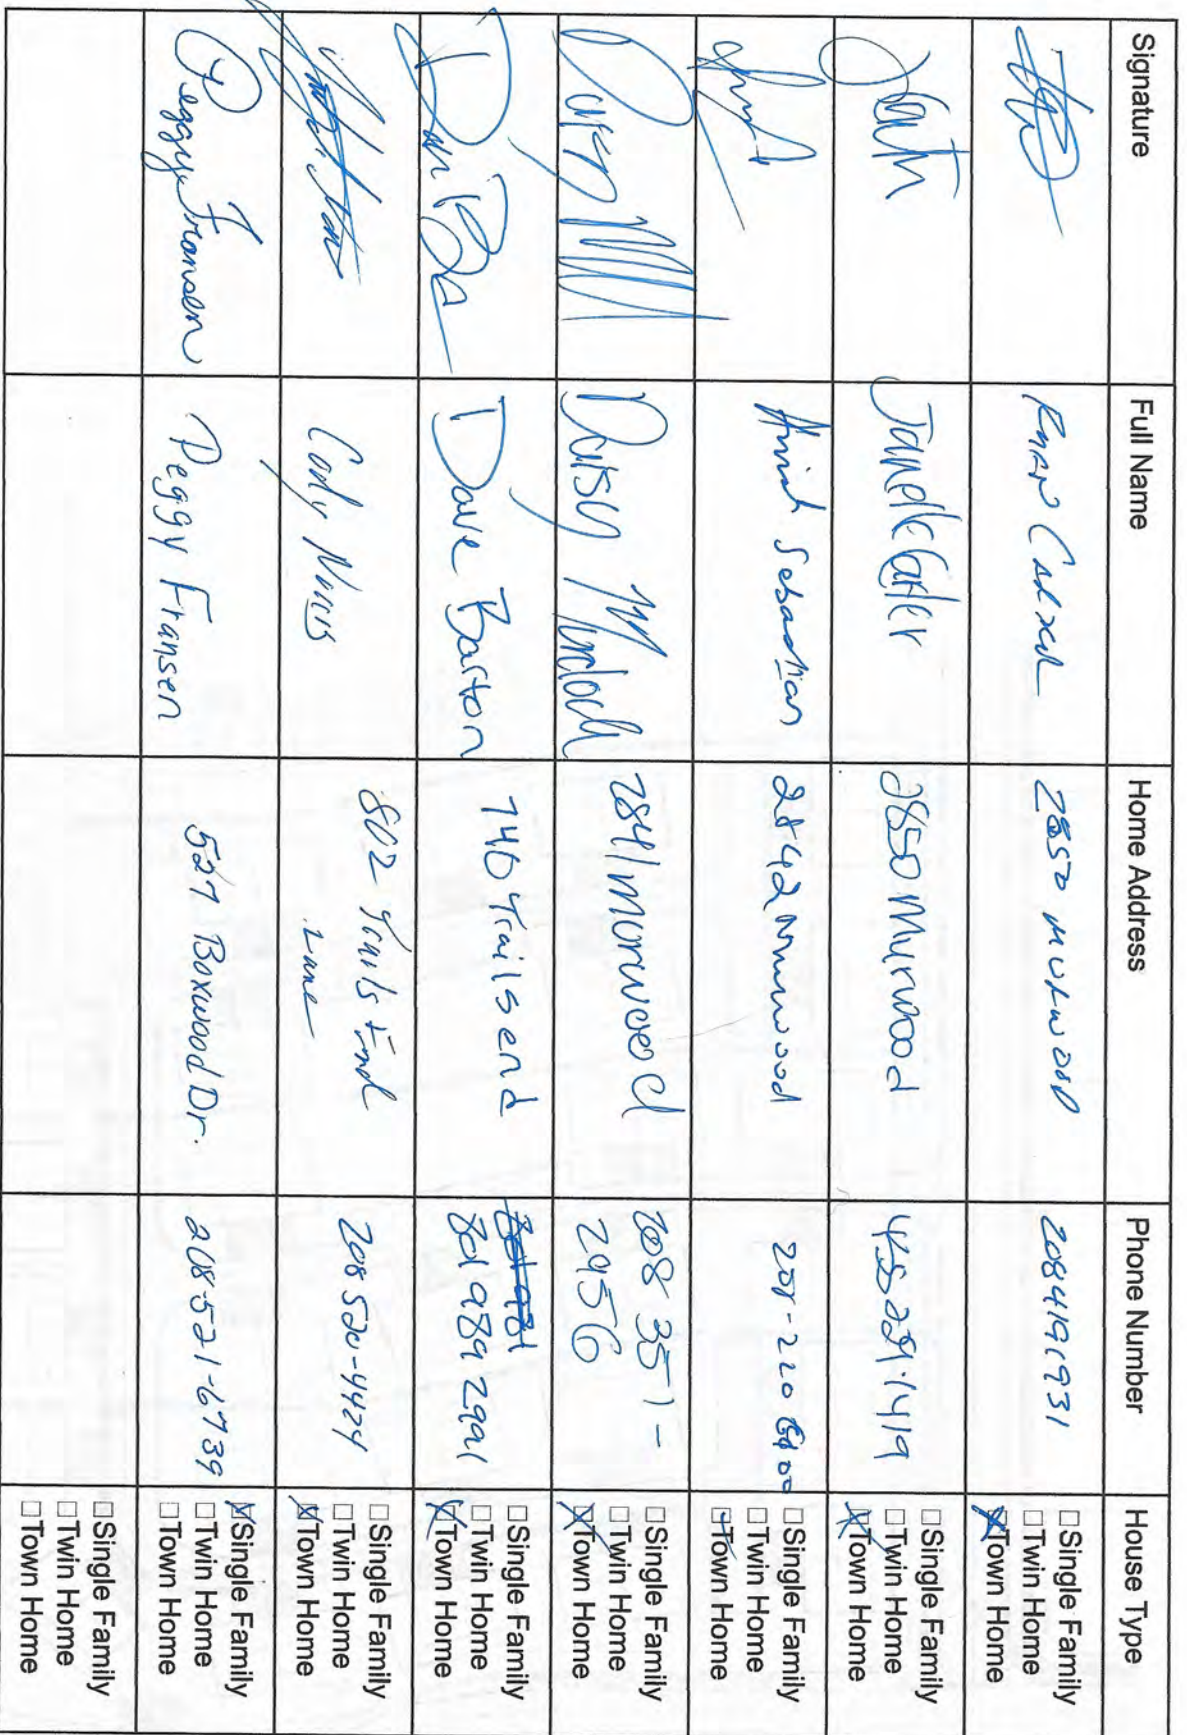 Signature Full Name Home Address Phone Number House Type
2850 Murwood 2084191931 □Single Family
□Twin Home
☒Town Home
Janelle Carter 2850 Murwood 435 229·1419 □Single Family
□Twin Home
☒Town Home
Sebastian 2842 Murwood □Single Family
□Twin Home
☑Town Home
Daisy Murdock 2841 Murwood 208 351- □Single Family
2956 □Twin Home
☒Town Home
Dave Barton 746 Trails end 801 989 2991 □Single Family
□Twin Home
☒Town Home
Cody 802 Trails End 208 520-4424 □Single Family
Lane □Twin Home
☒Town Home
Peggy Fransen Peggy Fransen 527 Boxwood Dr. 208-521-6739 ☒Single Family
□Twin Home
□Town Home
□Single Family
□Twin Home
□Town Home